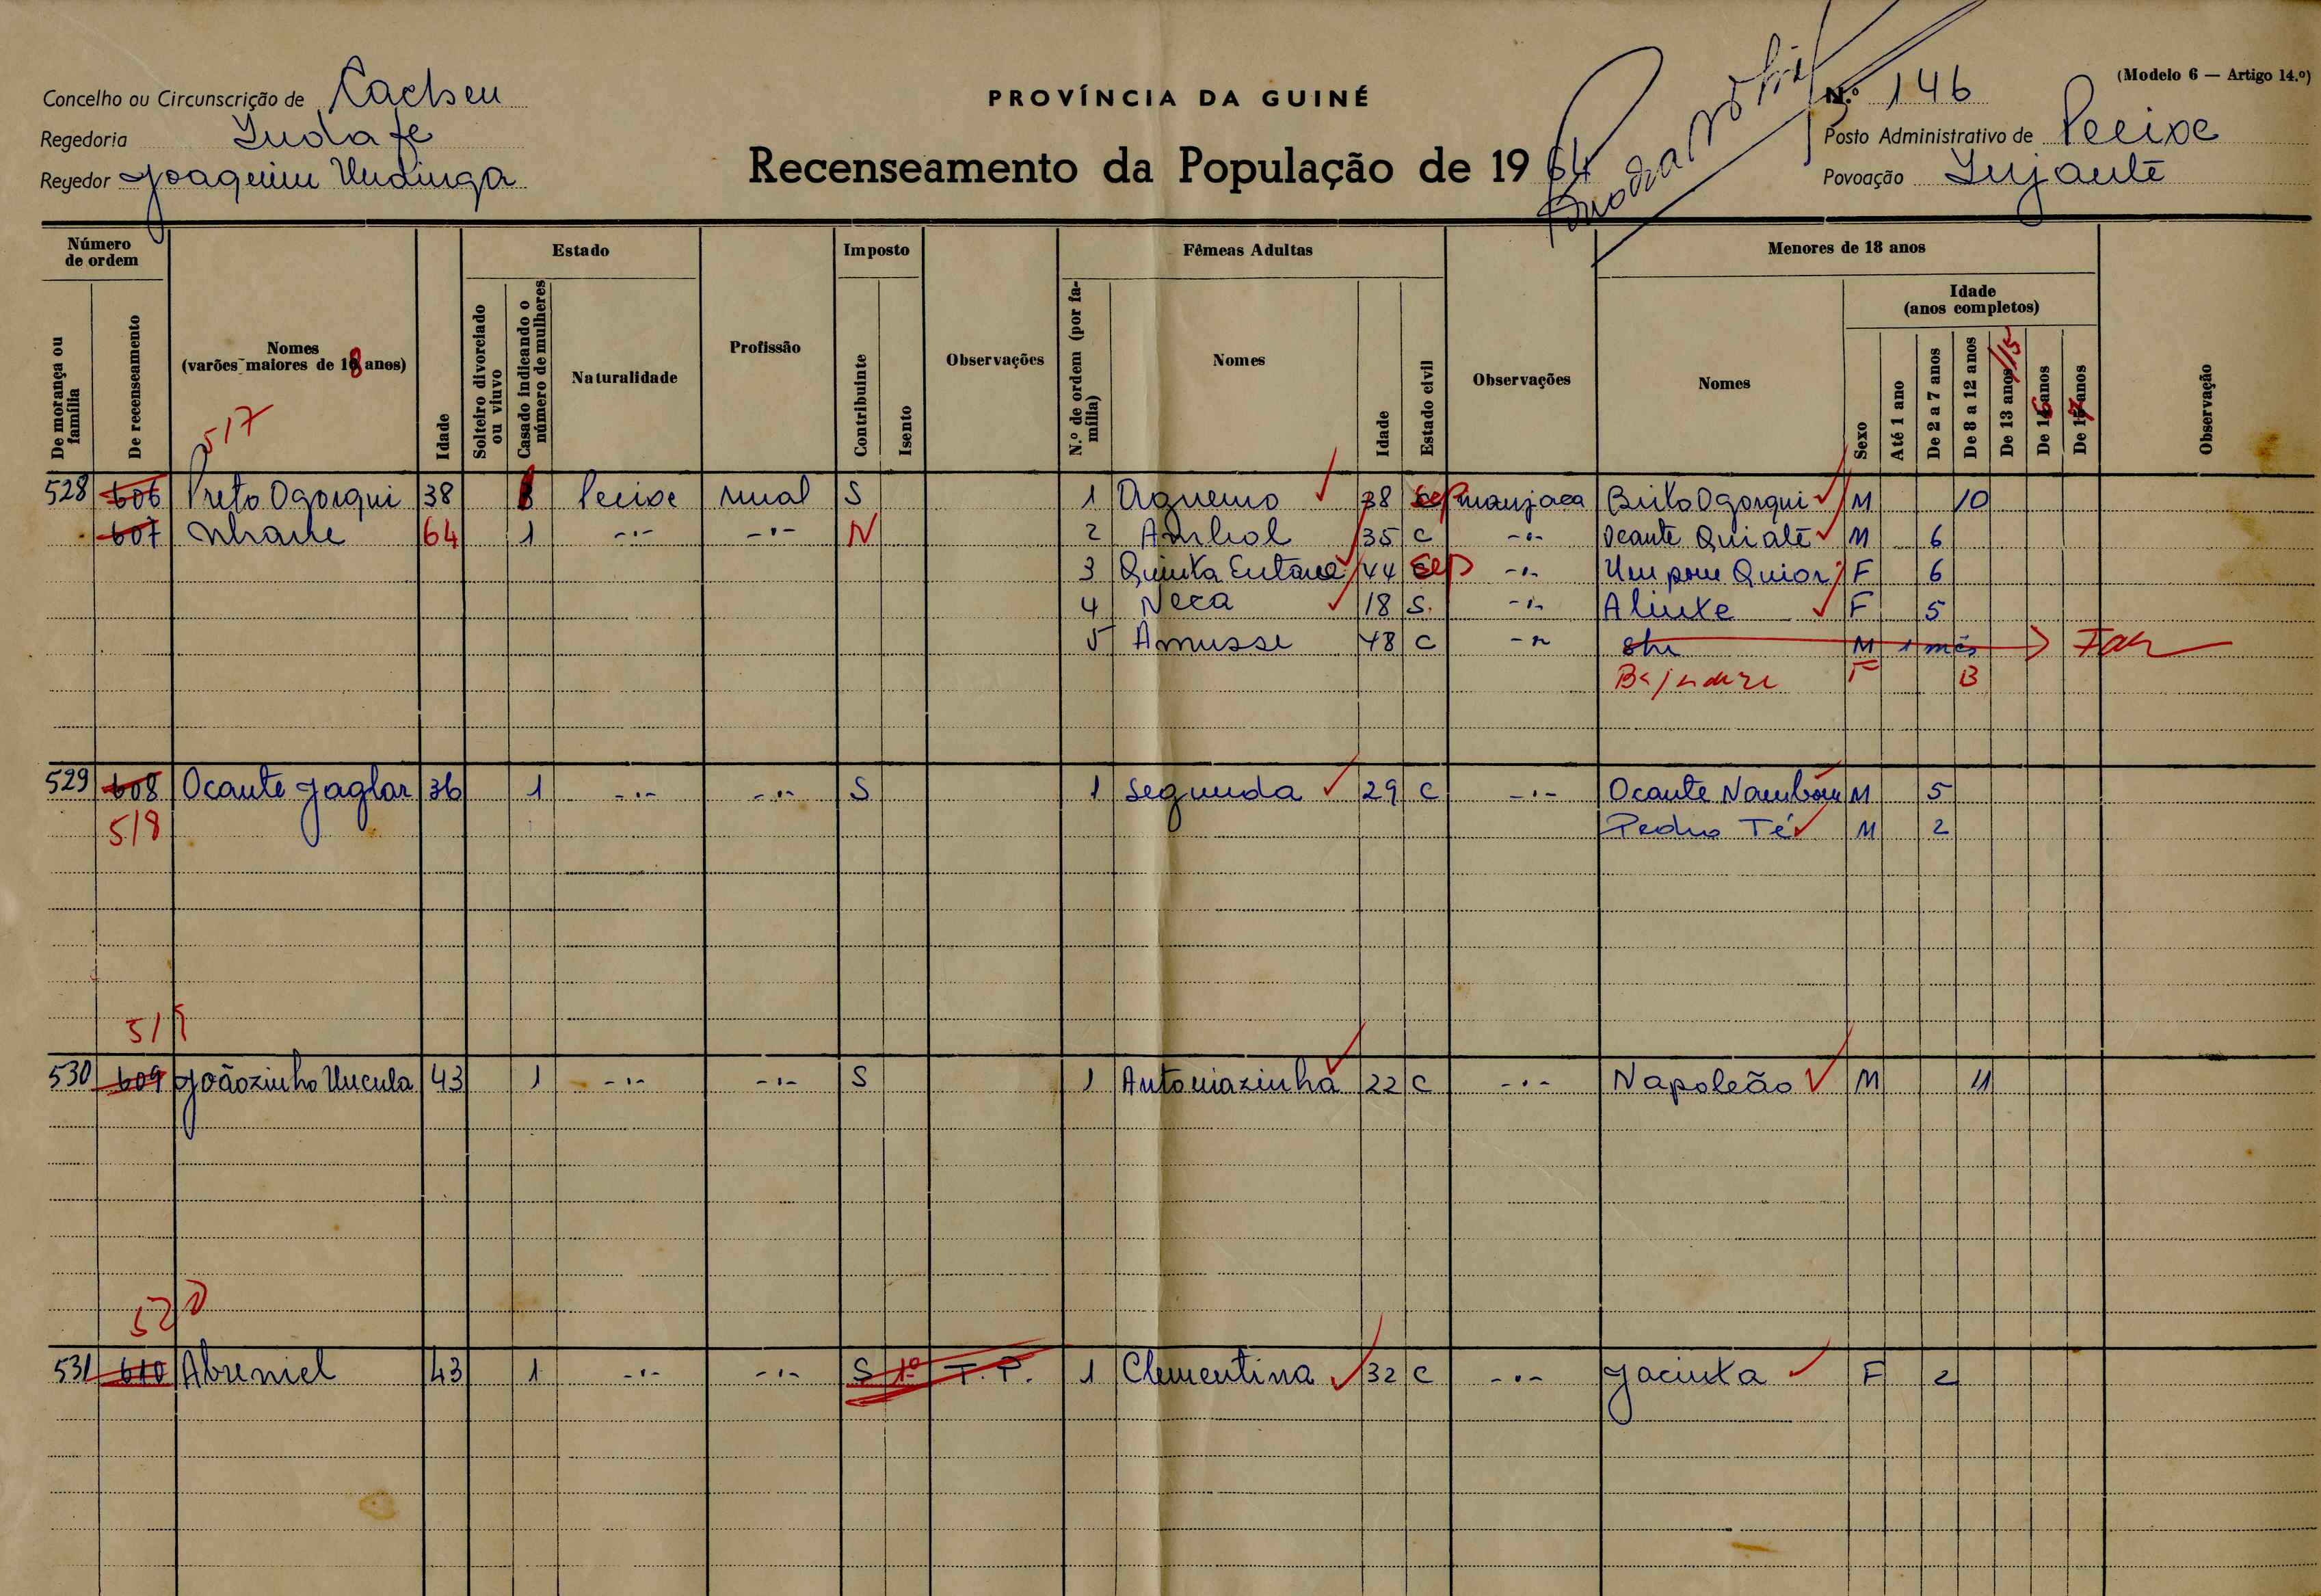 (Modelo 6 — Artigo 14.º)
Concelho ou Circunscrição de Cacheu
PROVÍNCIA DA GUINÉ
N.º 146
Regedoria
Posto Administrativo de Pecixe
Regedor Joaquim
Recenseamento da População de 1964
Povoação Injante
Número de ordem
Estado
Imposto
Fêmeas Adultas
Menores de 18 anos
Idade
(anos completos)
De morança ou família
De recenseamento
Nomes
(varões maiores de 18 anos)
Idade
Solteiro divorciado ou viuvo
Casado indicando o número de mulheres
Naturalidade
Profissão
Contribuinte
Isento
Observações
N.º de ordem (por família)
Nomes
Idade
Estado civil
Observações
Nomes
Sexo
Até 1 ano
De 2 a 7 anos
De 8 a 12 anos
De 13 anos /15
De 16 anos
De 17 anos
Observação
517
528 606 Preto Ogorqui 38 Pecixe rural S 1 Aguemo 38 Sep manjaca Brito Ogorqui M 10
607 64 1 -·- -·- N 2 35 C -·- Ocante Quiatê M 6
3 Quinta 44 Sep -·- F 6
4 Neca 18 S. -·- Alinte F 5
5 Amusse 48 C -·- M 1 mês
F 13
529 608 Ocante Jaglar 36 1 -·- -·- S 1 Segunda 29 C -·- Ocante M 5
518 Pedro Té M 2
519
530 609 Joãozinho Uncula 43 1 -·- -·- S 1 Antoniazinha 22 C -·- Napoleão M 11
520
531 610 Abreniel 43 1 -·- -·- S 1º T. P. 1 Clementina 32 C -·- Jacinta F 2